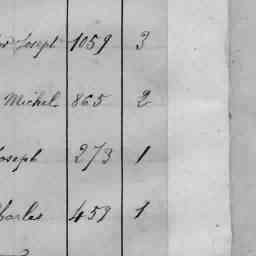 Joseph 1059 3
Michel 865 2
Joseph 273 1
Charles 459 1